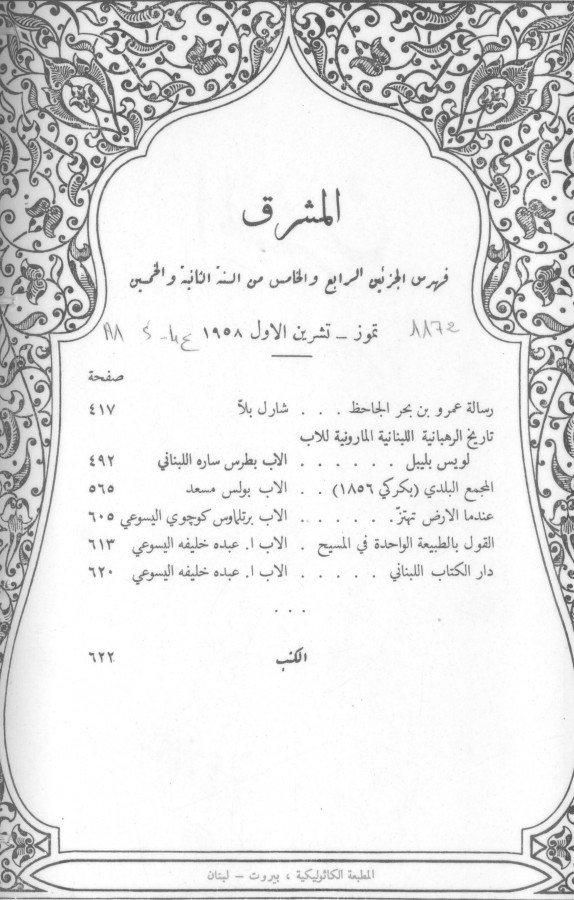 المشرق
فهرس الجزئين الرابع والخامس من السنة الثانية والخمسين
تموز – تشرين الاول ١٩٥٨
صفحة
رسالة عمرو بن بحر الجاحظ . . . شارل بلّا ٤١٧
تاريخ الرهبانية اللبنانية المارونية للاب
لويس بليبل . . . . . . الاب بطرس ساره اللبناني ٤٩٢
المجمع البلدي (بكركي ١٨٥٦) . . الاب بولس مسعد ٥٦٥
عندما الارض تهتزّ . . . . . . الاب برتلماوس كوجوي اليسوعي ٦٠٥
القول بالطبيعة الواحدة في المسيح . الاب ا. عبده خليفه اليسوعي ٦١٣
دار الكتاب اللبناني . . . . . الاب ا. عبده خليفه اليسوعي ٦٢٠
. . .
الكتب ٦٢٢
المطبعة الكاثوليكية ، بيروت – لبنان